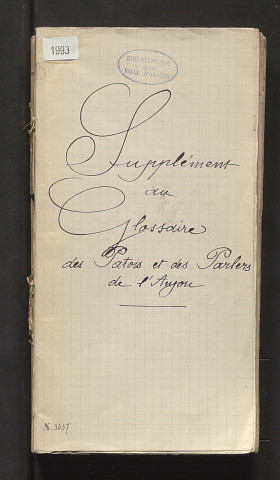 1993
BIBLIOTHÈQUE
VILLE D'ANGERS
Supplément
au
Glossaire
des Patois et des Parlers
de l'Anjou
N. 3637